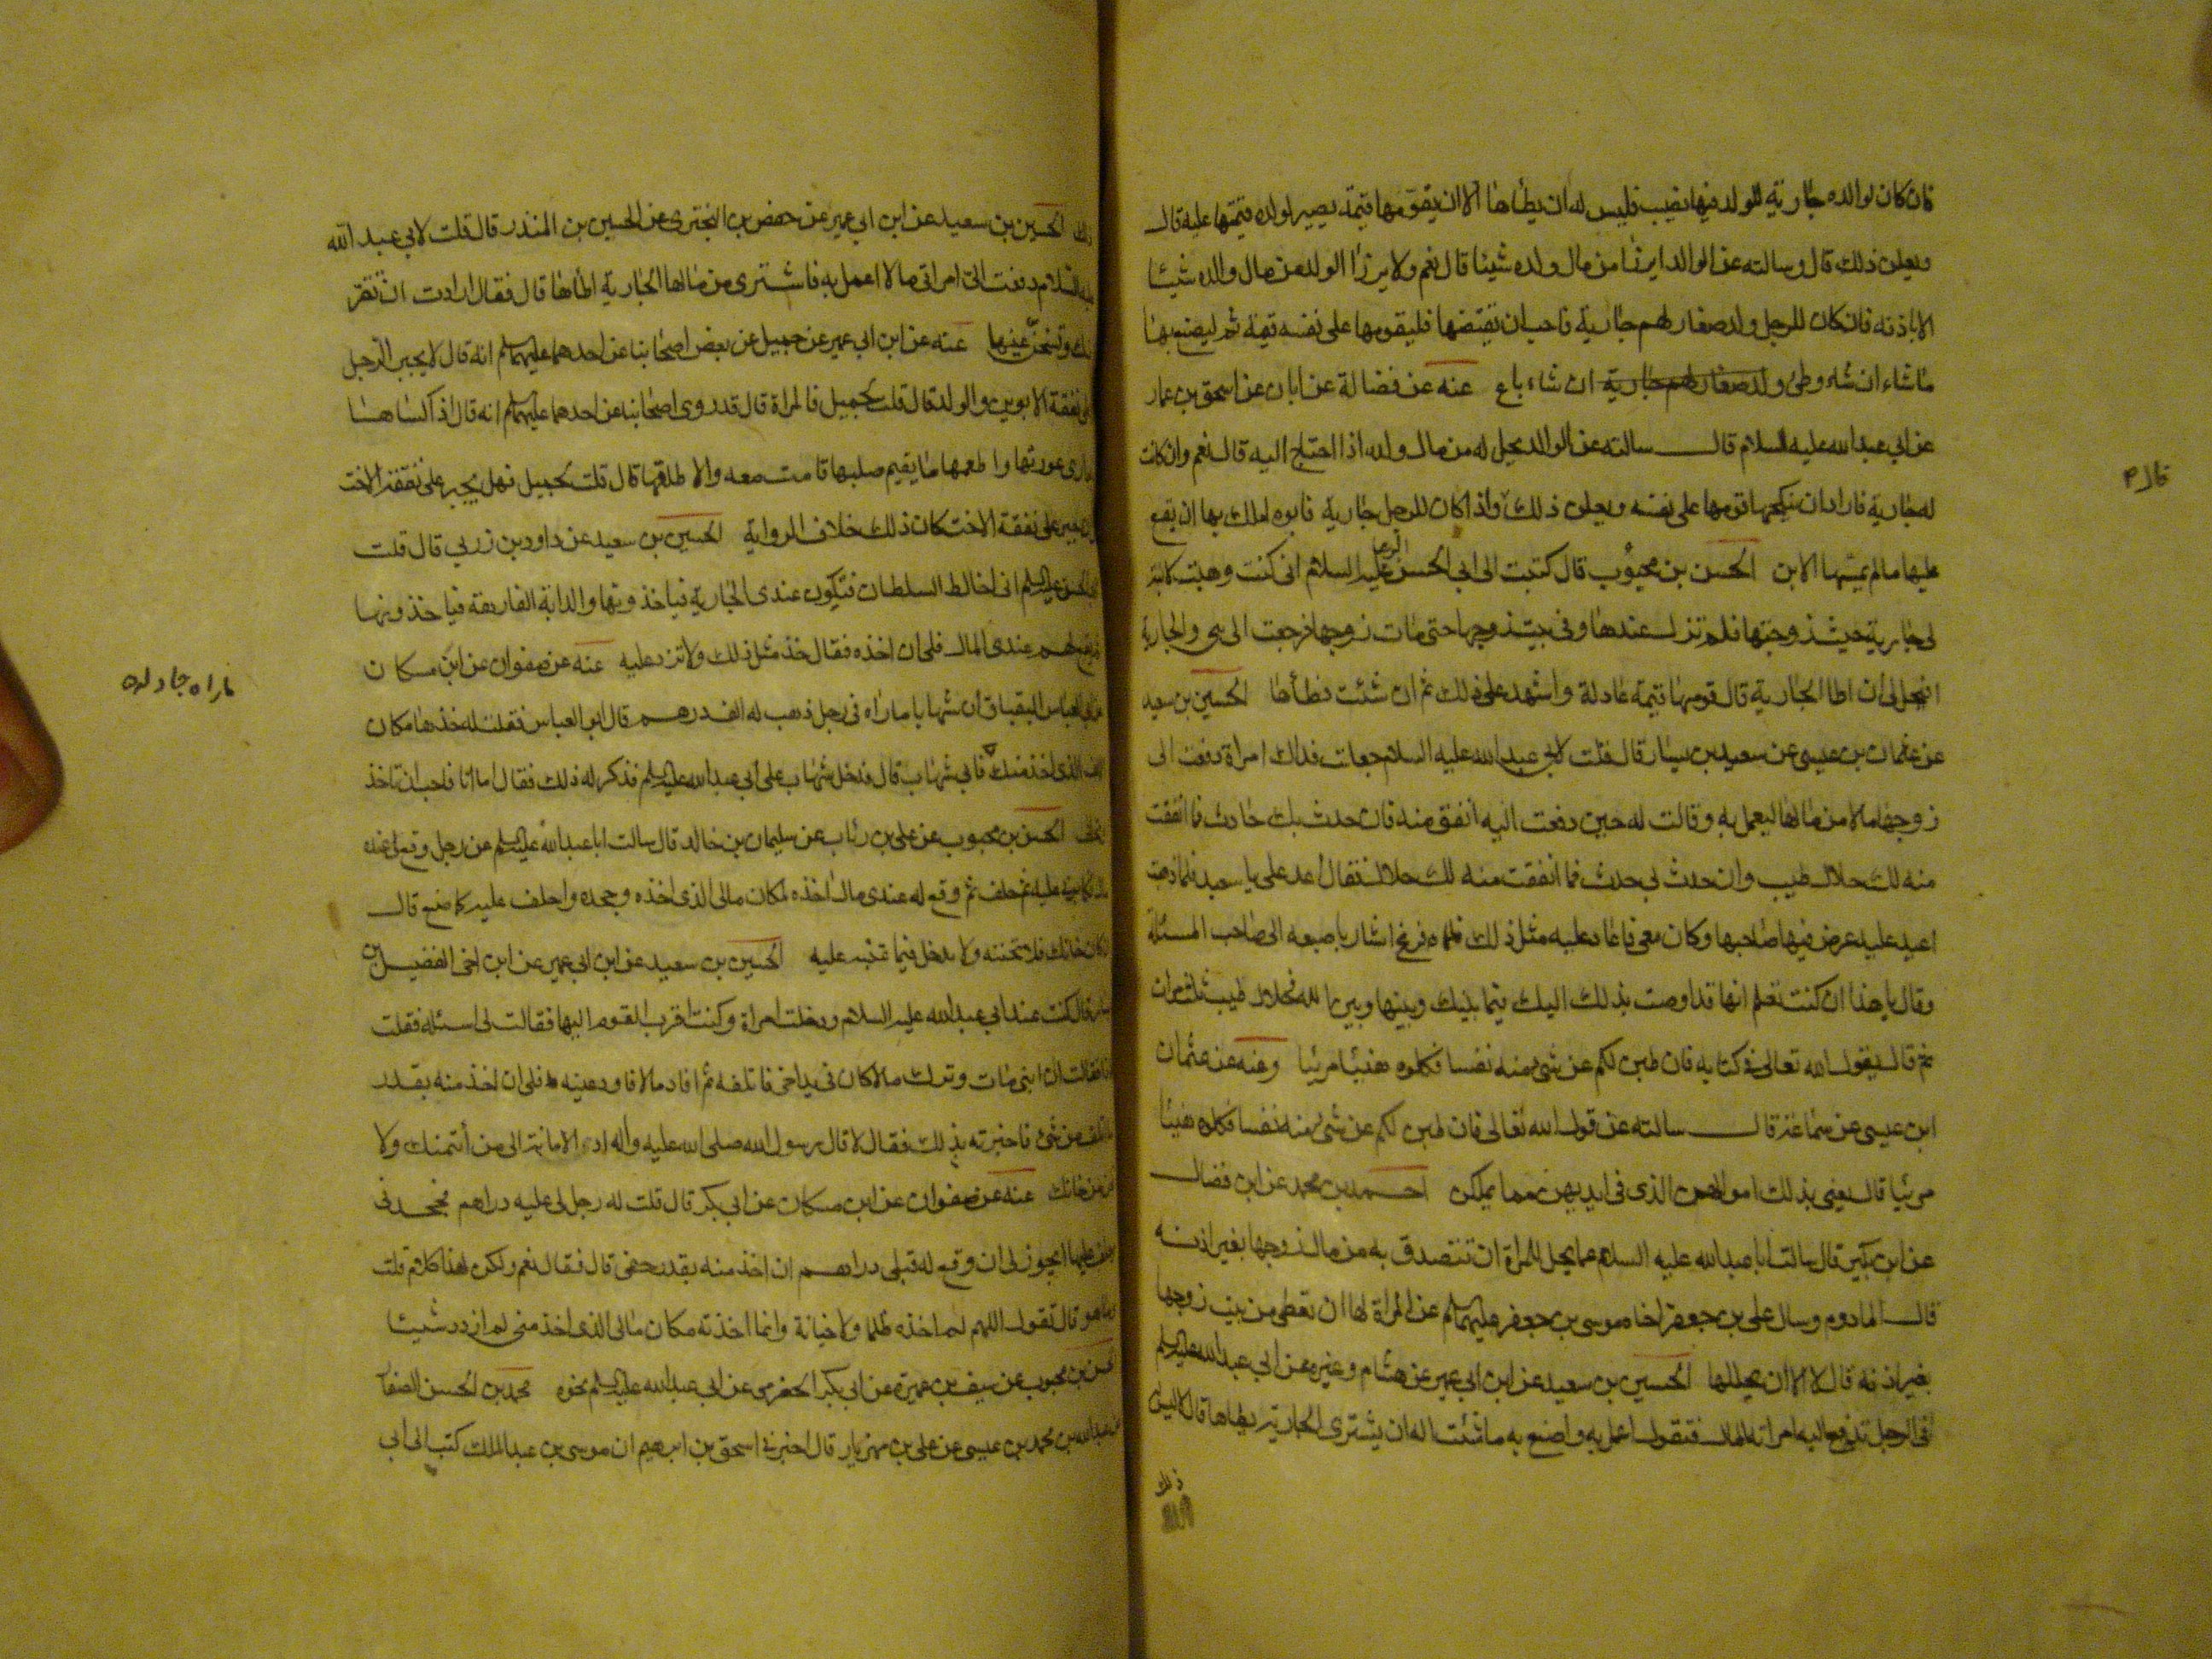 فان كان لوالده جارية للولد فيها نصيب فليس له ان يطأها الا ان يقومها قيمة يصير لولده قيمتها عليه قال
ويعلن ذلك قال وسالته عن الوالد ايرزا من مال ولده شيئا قال نعم ولا يرزا الولد من مال والده شيئا
الا باذنه فان كان للرجل ولد صغار لهم جارية فاحب ان يقتضها فليقومها على نفسه قيمة ثم ليصنع بها
ما شاء ان شاء وطئ ولد صغار لهم جارية ان شاء باع عنه عن فضالة عن ابان عن اسحق بن عمار
عن ابي عبد الله عليه السلام قال سالته عن الوالد يحل له من مال ولده اذا احتاج اليه قال نعم وان كانت
له جارية فاراد ان ينكحها قومها على نفسه ويعلن ذلك واذا كان للرجل جارية فابوه املك بها ان يقع
عليها ما لم يمسها الابن الحسن بن محبوب قال كتبت الى ابي الحسن الرضا عليه السلام اني كنت وهبت لابنة
لي جارية حيث زوجتها فلم تزل عندها وفي بيت زوجها حتى مات زوجها فرجعت الي هي والجارية
افيحل لي ان اطا الجارية قال قومها قيمة عادلة واشهد على ذلك ثم ان شئت فطأها الحسين بن سعيد
عن عثمان بن عيسى عن سعيد بن يسار قال قلت لابي عبد الله عليه السلام جعلت فداك امراة دفعت الى
زوجها مالا من مالها ليعمل به وقالت له حين دفعت اليه انفق منه فان حدث بك حادث فما انفقت
منه لك حلال طيب وان حدث بي حدث فما انفقت منه لك حلال فقال اعد علي يا سعيد فلما ذهبت
اعيد عليه عرض فيها صاحبها وكان معي فاعاد عليه مثل ذلك فلما فرغ اشار باصبعه الى صاحب المسئلة
وقال يا هذا ان كنت تعلم انها قد اوصت بذلك اليك فيما بينك وبينها وبين الله فحلال طيب ثلث مرات
ثم قال يقول الله تعالى في كتابه فان طبن لكم عن شيء منه نفسا فكلوه هنيئا مريئا وعنه عن عثمان
ابن عيسى عن سماعة قال سالته عن قول الله تعالى فان طبن لكم عن شيء منه نفسا فكلوه هنيئا
مريئا قال يعني بذلك اموالهن الذي في ايديهن مما يملكن احمد بن محمد عن ابن فضال
عن ابن بكير قال سالت ابا عبد الله عليه السلام عما يحل للمراة ان تتصدق به من مال زوجها بغير اذنه
قال المادوم وسال علي بن جعفر اخاه موسى بن جعفر عليهما السلام عن المراة لها ان تعطي من بيت زوجها
بغير اذنه قال لا الا ان يحللها الحسين بن سعيد عن ابن ابي عمير عن هشام وغيره عن ابي عبد الله عليه السلام
في الرجل تدفع اليه امراته المال فتقول اعمل به واصنع به ما شئت اله ان يشتري الجارية يطاها قال لا ليس
ذلك
الحسين بن سعيد عن ابن ابي عمير عن حفص بن البختري عن الحسين بن المنذر قال قلت لابي عبد الله
عليه السلام دفعت الي امراتي مالا اعمل به فاشتري من مالها الجارية اطأها قال فقال ارادت ان تقر
عينك وتسخن عينها عنه عن ابن ابي عمير عن جميل عن بعض اصحابنا عن احدهما عليهما السلام انه قال لا يجبر الرجل
الا على نفقة الابوين والولد قال قلت لجميل فالمراة قال قد روى اصحابنا عن احدهما عليهما السلام انه قال اذا كساها
ما يواري عورتها واطعمها ما يقيم صلبها قامت معه والا طلقها قال قلت لجميل فهل يجبر على نفقة الاخت
قال ان اجبر على نفقة الاخت كان ذلك خلاف الرواية الحسين بن سعيد عن داود بن زربي قال قلت
لابي الحسن عليه السلام اني اخالط السلطان فتكون عندي الجارية فياخذونها والدابة الفارهة فياخذونها
ثم يقع لهم عندي المال فلي ان اخذه فقال خذ مثل ذلك ولا تزد عليه عنه عن صفوان عن ابن مسكان
عن ابي العباس البقباق ان شهابا ماراه في رجل ذهب له الف درهم قال ابو العباس فقلت له خذها مكان
الالف الذي اخذ منك فابى شهاب قال فدخل شهاب على ابي عبد الله عليه السلام فذكر له ذلك فقال اما انا فاحب ان تاخذ
وتحلف الحسن بن محبوب عن علي بن رئاب عن سليمان بن خالد قال سالت ابا عبد الله عليه السلام عن رجل وقع لي عنده
مال فكابرني عليه ثم حلف ثم وقع له عندي مال اخذه لمكان مالي الذي اخذه وجحده واحلف عليه كما صنع قال
ان كان خانك فلا تخنه ولا تدخل فيما عتبه عليه الحسين بن سعيد عن ابن ابي عمير عن ابن اخي الفضيل بن
يسار قال كنت عند ابي عبد الله عليه السلام ودخلت امراة وكنت اقرب القوم اليها فقالت لي اسئله فقلت
عما ذا فقالت ان ابني مات وترك مالا كان في يد اخي فاتلفه ثم افاد مالا فاودعنيه فلي ان اخذ منه بقدر
ما اتلف من شيء فاخبرته بذلك فقال لا قال رسول الله صلى الله عليه وآله اد الامانة الى من ائتمنك ولا
تخن من خانك عنه عن صفوان عن ابن مسكان عن ابي بكر قال قلت له رجل لي عليه دراهم فجحدني
وحلف عليها ايجوز لي ان وقع له قبلي دراهم ان اخذ منه بقدر حقي قال فقال نعم ولكن لهذا كلام قلت
وما هو قال تقول اللهم لم اخذه ظلما ولا خيانة وانما اخذته مكان مالي الذي اخذ مني لم ازدد شيئا
الحسن بن محبوب عن سيف بن عميرة عن ابي بكر الحضرمي عن ابي عبد الله عليه السلام نحوه محمد بن الحسن الصفار
عن عبد الله بن محمد بن عيسى عن علي بن مهزيار قال اخبرني اسحق بن ابرهيم ان موسى بن عبد الملك كتب الى ابي
ماراه جادله